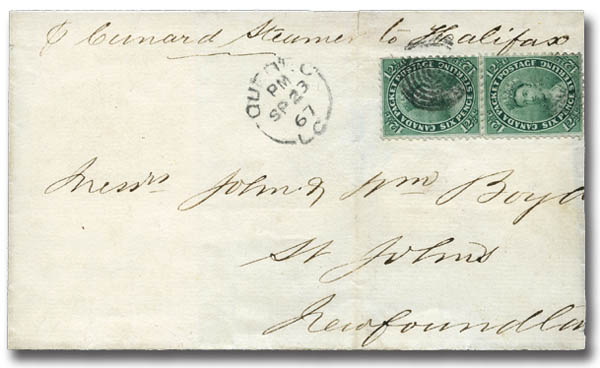 P Cunard Steamer to Halifax
QUEBEC
PM
SP 23
67
L.C
CANADA PACKET POSTAGE SIX PENCE STERLING
12½c
CANADA PACKET POSTAGE SIX PENCE STERLING
12½c
Messrs John & Wm Boyd
St Johns
Newfoundlan